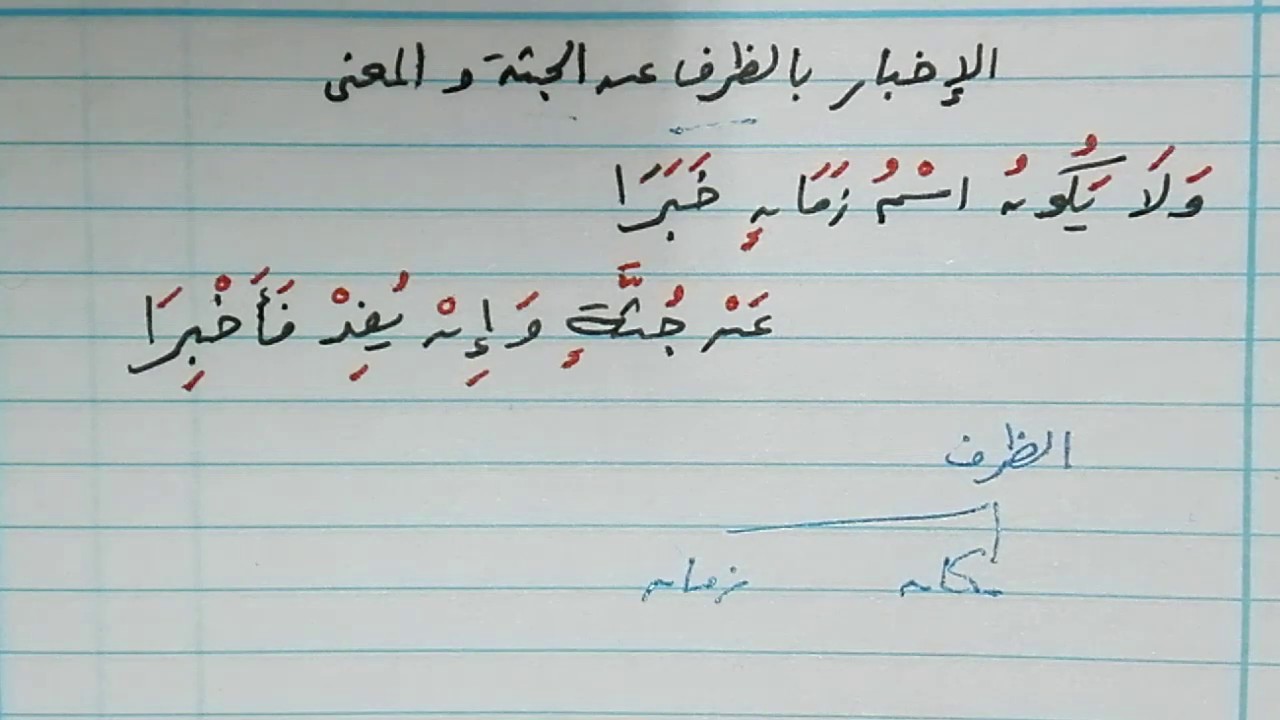 الإخبار بالظرف عن الجثة و المعنى
وَلَا يَكُونُ اسْمُ زَمَانٍ خَبَرَا
عَنْ جُثَّةٍ وَإِنْ يُفِدْ فَأَخْبِرَا
الظرف
مكان زمان